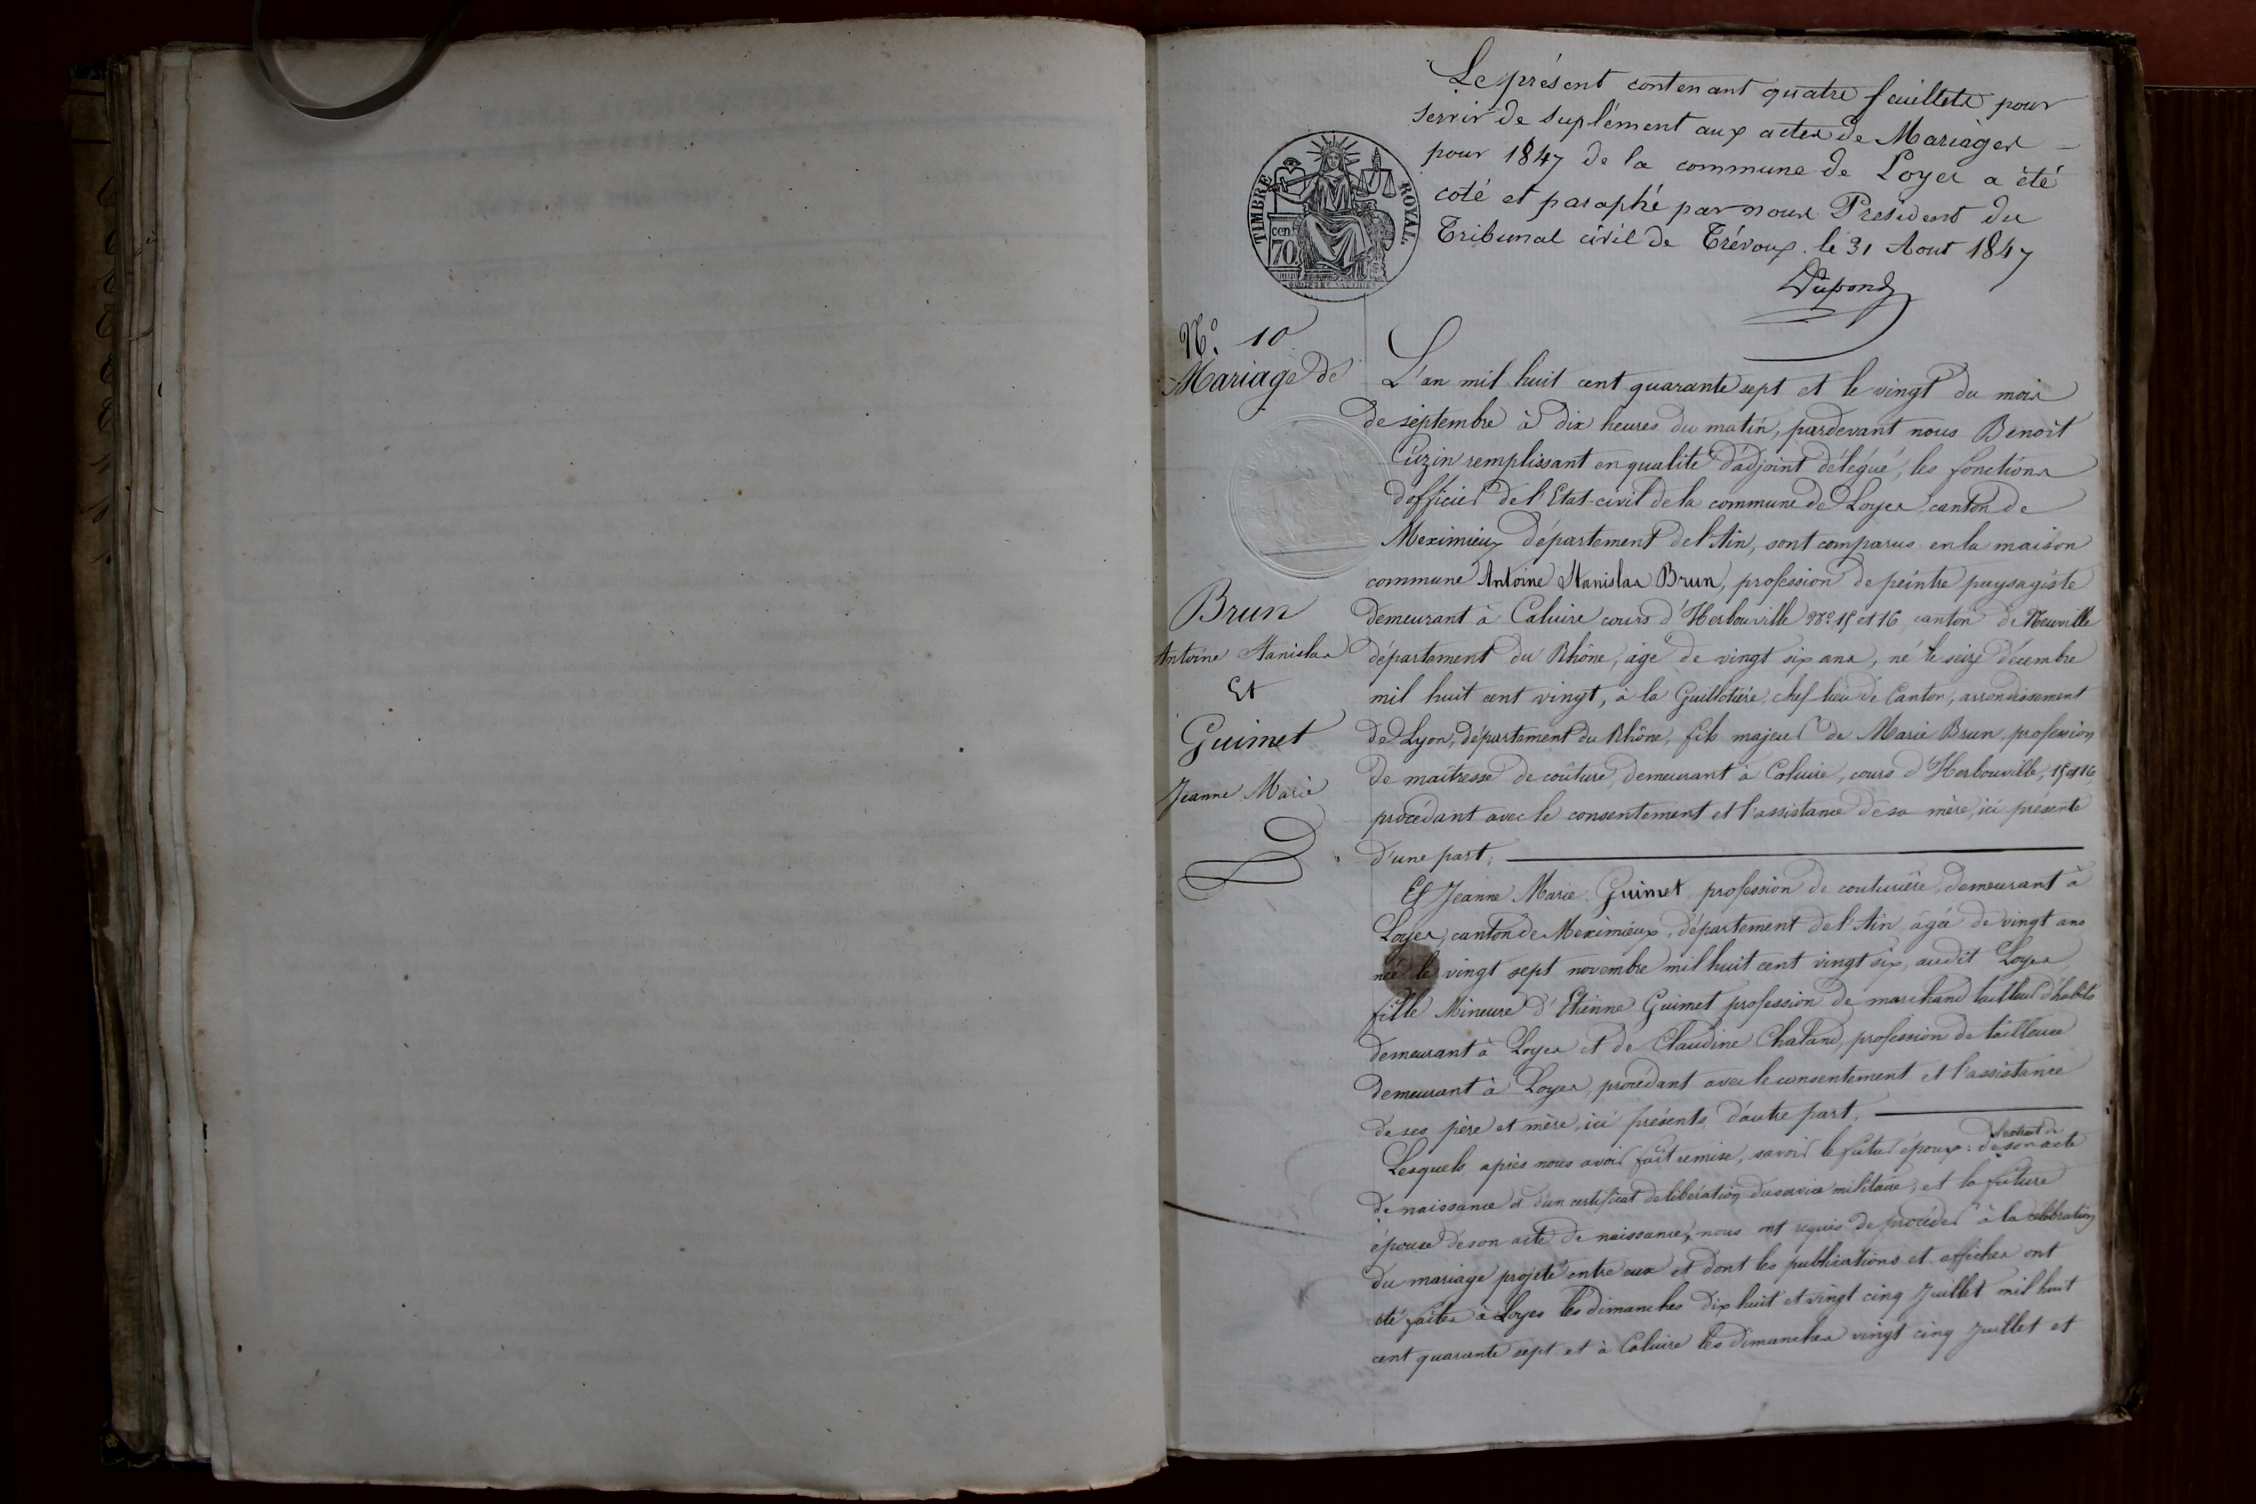 Le présent contenant quatre feuillets pour
servir de suplément aux actes de Mariages
pour 1847 de la commune de Loyes a été
coté et paraphé par nous Président du
Tribunal civil de Trévoux le 31 Aout 1847
Dupond
TIMBRE ROYAL
cen.
70
N.° 10
Mariage de
Brun
Antoine Stanislas
Et
Guimet
Jeanne Marie
L'an mil huit cent quarante sept et le vingt du mois
de septembre à dix heures du matin, pardevant nous Benoît
Cuzin remplissant en qualité d'adjoint délégué, les fonctions
d'officier de l'Etat-civil de la commune de Loyes, canton de
Meximieux département de l'Ain, sont comparus en la maison
commune Antoine Stanislas Brun, profession de peintre paysagiste
demeurant à Caluire cours d'Herbouville N.° 15 et 16, canton de Neuville
département du Rhône, âgé de vingt six ans, né le seize décembre
mil huit cent vingt, à la Guillotière, chef-lieu de Canton, arrondissement
de Lyon, département du Rhône, fils majeur de Marie Brun, profession
de maîtresse de couture, demeurant à Caluire, cours d'Herbouville, 15 et 16
procédant avec le consentement et l'assistance de sa mère, ici présente
d'une part;
Et Jeanne Marie Guimet profession de couturière, demeurant à
Loyes, canton de Meximieux, département de l'Ain âgée de vingt ans
née le vingt sept novembre mil huit cent vingt six, audit Loyes,
fille Mineure d'Etienne Guimet profession de marchand tailleur d'habits
demeurant à Loyes et de Claudine Chaland, profession de tailleuse
demeurant à Loyes, procédant avec le consentement et l'assistance
de ses père et mère, ici présents, d'autre part.
Lesquels après nous avoir fait remise, savoir le futur époux: de l'extrait de son acte
de naissance et d'un certificat de libération du service militaire; et la future
épouse de son acte de naissance, nous ont requis de procéder à la célébration
du mariage projeté entre eux et dont les publications et affiches ont
été faites à Loyes les dimanches dix huit et vingt cinq Juillet mil huit
cent quarante sept et à Caluire les dimanches vingt cinq Juillet et